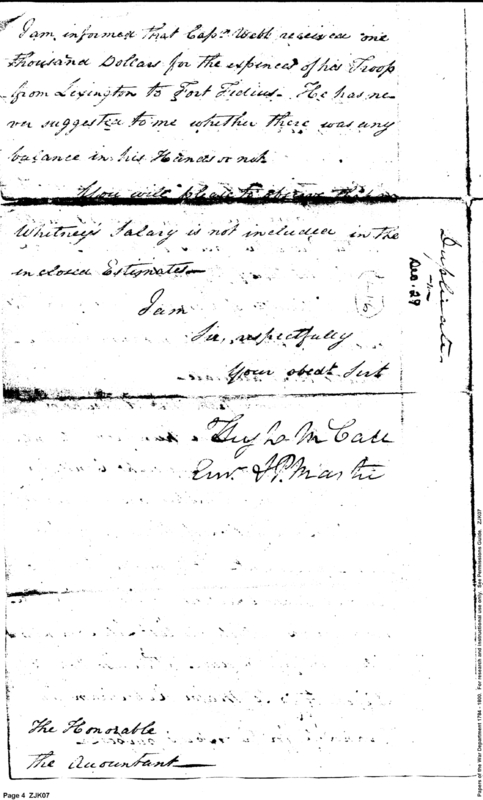 I am informed that Capn. Webb received one
thousand Dollars for the expences of his Troop
from Lexington to Fort Fidius. He has ne-
ver suggested to me whether there was any
balance in his Hands or not
You will please to observe that
Whitney's Salary is not included in the
inclosed Estimates—
I am
Sir, respectfully
Your obedt Sert
Hugh McCall
The Honorable
The Accountant—
Duplicate
Dec. 29
Page 4 ZJK07
Papers of the War Department 1784 - 1800. For research and instructional use only. See Permissions Guide. ZJK07